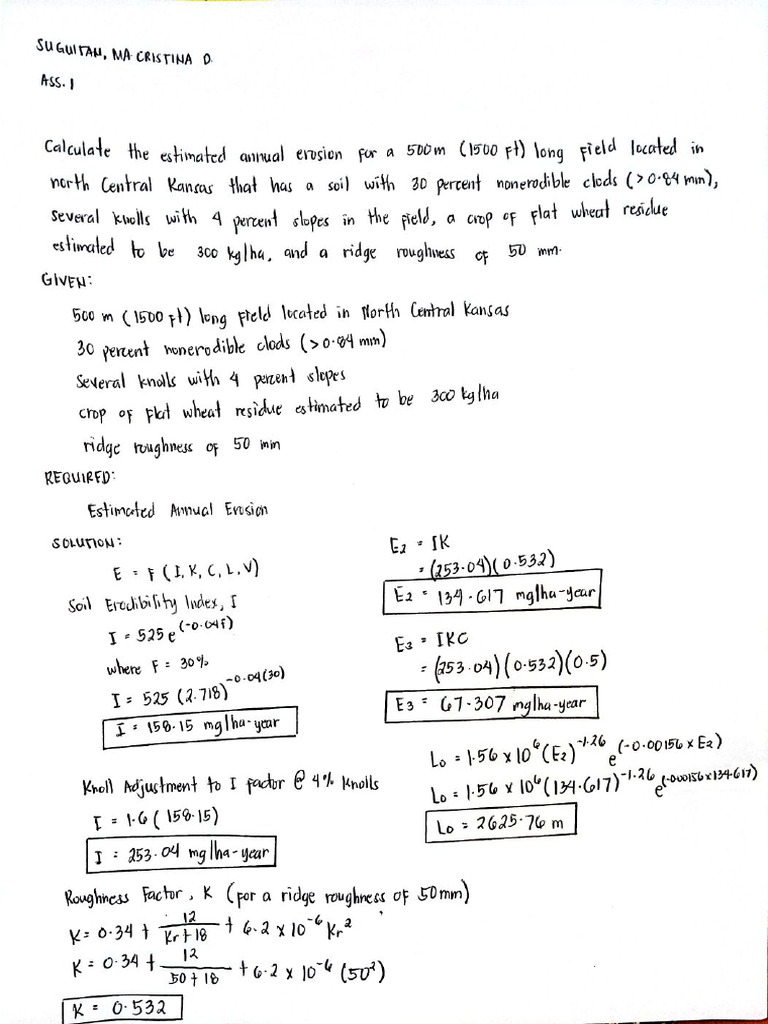 SUGUITAN, MA. CRISTINA D.
ASS. 1
Calculate the estimated annual erosion for a 500m (1500 ft) long field located in
north Central Kansas that has a soil with 30 percent nonerodible clods (>0.84 mm),
several knolls with 4 percent slopes in the field, a crop of flat wheat residue
estimated to be 300 kg/ha, and a ridge roughness of 50 mm.
GIVEN:
500 m (1500 ft) long field located in North Central Kansas
30 percent nonerodible clods (>0.84 mm)
several knolls with 4 percent slopes
crop of flat wheat residue estimated to be 300 kg/ha
ridge roughness of 50 mm
REQUIRED:
Estimated Annual Erosion
SOLUTION:
E = F (I, K, C, L, V)
Soil Erodibility Index, I
I = 525 e^(-0.04F)
where F = 30%
I = 525 (2.718)^-0.04(30)
I = 158.15 mg/ha-year
Knoll Adjustment to I factor @ 4% knolls
I = 1.6 (158.15)
I = 253.04 mg/ha-year
Roughness Factor, K (for a ridge roughness of 50mm)
K = 0.34 + 12/(Kr + 18) + 6.2 x 10^-6 Kr^2
K = 0.34 + 12/(50 + 18) + 6.2 x 10^-6 (50^2)
K = 0.532
E2 = IK
= (253.04)(0.532)
E2 = 134.617 mg/ha-year
E3 = IKC
= (253.04)(0.532)(0.5)
E3 = 67.307 mg/ha-year
Lo = 1.56 x 10^6 (E2)^-1.26 e^(-0.00156 x E2)
Lo = 1.56 x 10^6 (134.617)^-1.26 e^(-0.00156 x 134.617)
Lo = 2625.76 m